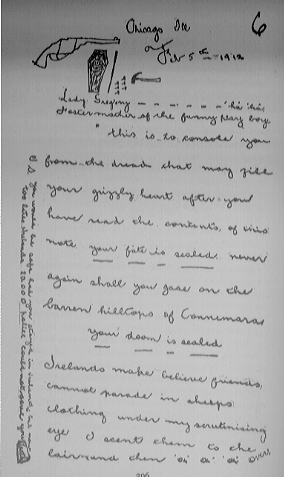 6
Chicago Ill
Feb 5th - 1912
Lady Gregory - - - - - - - "ha" ha'
Foster mother of the funny play boy
this is to console you
from the dreads that may fill
your grizzly heart after you
have read the contents of this
note your fate is sealed never
again shall you gase on the
barren hilltops of Connemaras
your doom is sealed
Irelands make believe friends
cannot parade in sheeps
clothing under my scrutinising
eye I scent them to the
lair and then
P.S. you would be safe had you stayed in Irelands
too late
206